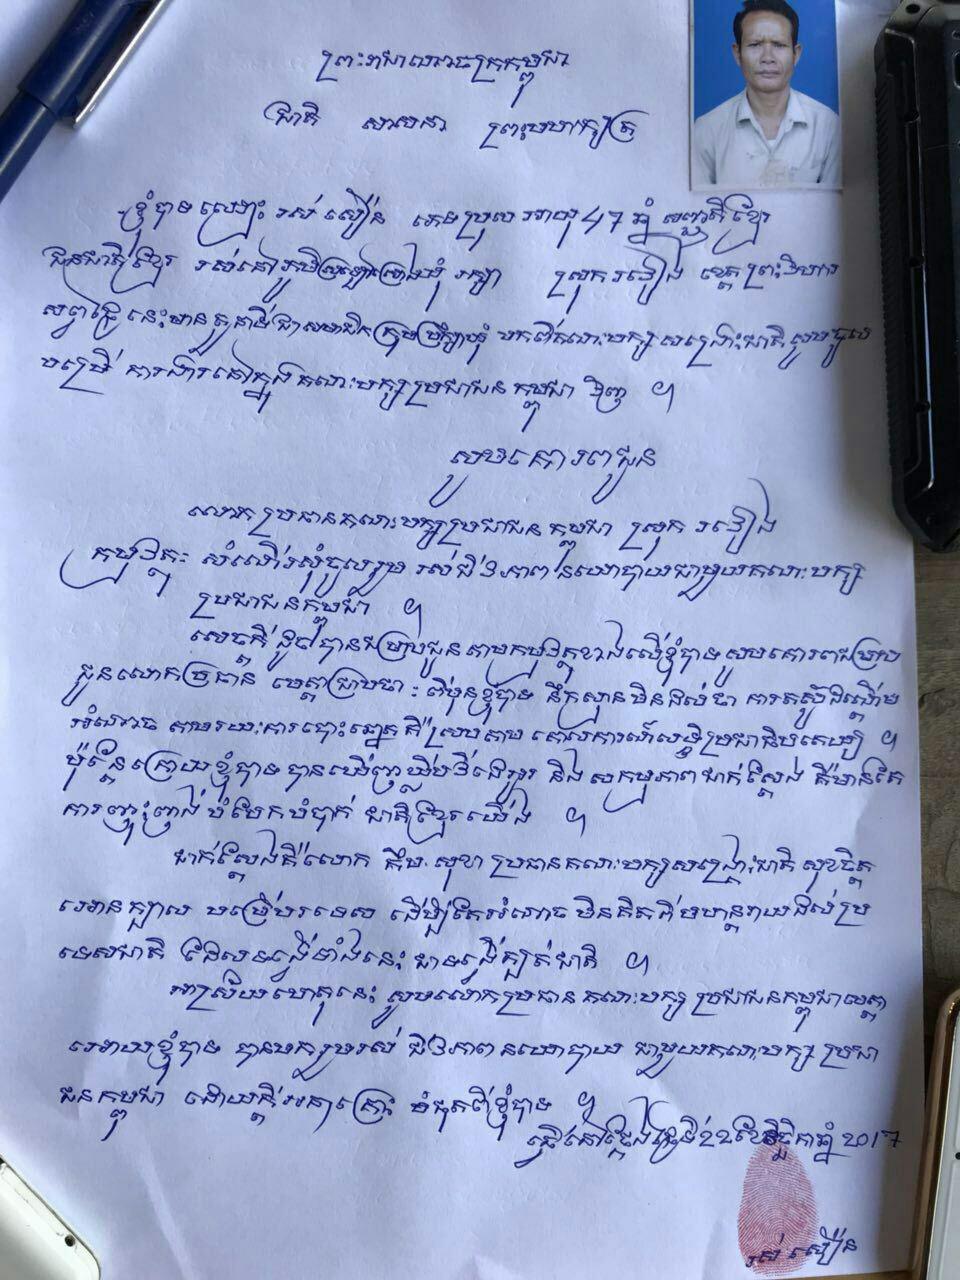 ព្រះរាជាណាចក្រកម្ពុជា
ជាតិ សាសនា ព្រះមហាក្សត្រ
ខ្ញុំបាទឈ្មោះ រស់ សឿន ភេទប្រុស អាយុ 47 ឆ្នាំ សញ្ជាតិខ្មែរ
ជនជាតិខ្មែរ រស់នៅភូមិ ឃុំ រក្សា ស្រុក រវៀង ខេត្ត ព្រះវិហារ
សព្វថ្ងៃនេះមានតួនាទីជាសមាជិកក្រុមប្រឹក្សាឃុំ មកពីគណៈបក្សសង្គ្រោះជាតិ សូមចូល
បម្រើ ការងារនៅក្នុងគណៈបក្សប្រជាជនកម្ពុជា វិញ ។
សូមគោរពជូន
លោកប្រធានគណៈបក្សប្រជាជនកម្ពុជា ស្រុក រវៀង
កម្មវត្ថុ៖ សំណើរសុំចូលរួម រស់ជីវភាពនយោបាយជាមួយគណៈបក្ស
ប្រជាជនកម្ពុជា ។
សេចក្តីដូចបានជម្រាបជូនតាមកម្មវត្ថុខាងលើខ្ញុំបាទសូមគោរពជម្រាប
ជូនលោកប្រធាន មេត្តាជ្រាបថា : ពីមុនខ្ញុំបាទ នឹកស្មានមិនដល់ថា ការតស៊ូដណ្តើម
អំណាច តាមរយៈការបោះឆ្នោត គឺស្របតាម គោលការណ៍លទ្ធិប្រជាធិបតេយ្យ ។
ប៉ុន្តែក្រោយខ្ញុំបាទ បានឃើញ និង សកម្មភាពជាក់ស្តែង គឺមានតែ
ការញុះញង់ បំបែកបំបាក់ ជាតិខ្មែរយើង ។
ជាក់ស្តែងគឺលោក កឹម សុខា ប្រធានគណៈបក្សសង្គ្រោះជាតិ សុខចិត្ត
អោនក្បាល បម្រើបរទេស ដើម្បីតែអំណាច មិនគិតពីមហន្តរាយដល់ប្រ
ទេសជាតិ ដែលទង្វើទាំងនេះ ជាទង្វើក្បត់ជាតិ ។
អាស្រ័យហេតុនេះ សូមលោកប្រធាន គណៈបក្ស ប្រជាជនកម្ពុជាមេត្តា
អោយខ្ញុំបាទ បានមករួមរស់ ជីវភាពនយោបាយ ជាមួយគណៈបក្ស ប្រជា
ជនកម្ពុជា ដោយក្តីអនុគ្រោះ បំផុតពីខ្ញុំបាទ ។
ធ្វើនៅ ថ្ងៃទី22ខែវិច្ឆិកាឆ្នាំ 2017
រស់ សឿន